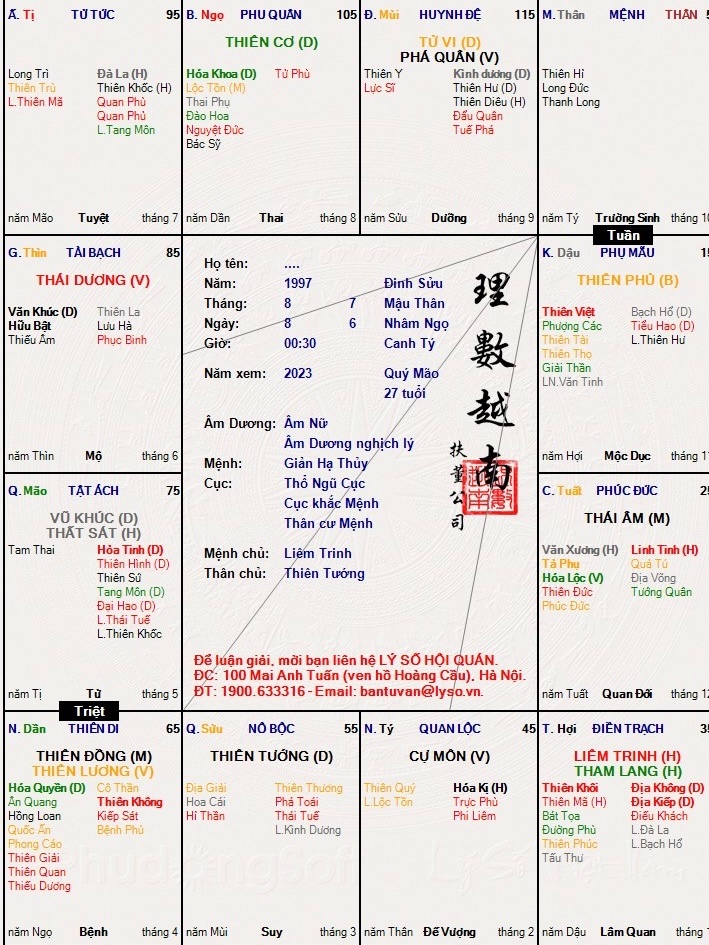 Ấ. Tị TỬ TỨC 95
Long Trì Đà La (H)
Thiên Trù Thiên Khốc (H)
L.Thiên Mã Quan Phù
Quan Phủ
L.Tang Môn
năm Mão Tuyệt tháng 7
B. Ngọ PHU QUÂN 105
THIÊN CƠ (D)
Hóa Khoa (D) Tử Phù
Lộc Tồn (M)
Thai Phụ
Đào Hoa
Nguyệt Đức
Bác Sỹ
năm Dần Thai tháng 8
Đ. Mùi HUYNH ĐỆ 115
TỬ VI (D)
PHÁ QUÂN (V)
Thiên Y Kình dương (D)
Lực Sĩ Thiên Hư (D)
Thiên Diêu (H)
Đẩu Quân
Tuế Phá
năm Sửu Dưỡng tháng 9
M. Thân MỆNH THÂN 5
Thiên Hỉ
Long Đức
Thanh Long
năm Tý Trường Sinh tháng 10
Tuần
G. Thìn TÀI BẠCH 85
THÁI DƯƠNG (V)
Văn Khúc (D) Thiên La
Hữu Bật Lưu Hà
Thiếu Âm Phục Binh
năm Thìn Mộ tháng 6
Họ tên: ....
Năm: 1997 Đinh Sửu
Tháng: 8 7 Mậu Thân
Ngày: 8 6 Nhâm Ngọ
Giờ: 00:30 Canh Tý
Năm xem: 2023 Quý Mão
27 tuổi
Âm Dương: Âm Nữ
Âm Dương nghịch lý
Mệnh: Giản Hạ Thủy
Cục: Thổ Ngũ Cục
Cục khắc Mệnh
Thân cư Mệnh
Mệnh chủ: Liêm Trinh
Thân chủ: Thiên Tướng
理數越南
扶董公司
Để luận giải, mời bạn liên hệ LÝ SỐ HỘI QUÁN.
ĐC: 100 Mai Anh Tuấn (ven hồ Hoàng Cầu), Hà Nội.
ĐT: 1900.633316 - Email: bantuvan@lyso.vn.
K. Dậu PHỤ MẪU 15
THIÊN PHỦ (B)
Thiên Việt Bạch Hổ (D)
Phượng Các Tiểu Hao (D)
Thiên Tài L.Thiên Hư
Thiên Thọ
Giải Thần
LN.Văn Tinh
năm Hợi Mộc Dục tháng 11
Q. Mão TẬT ÁCH 75
VŨ KHÚC (D)
THẤT SÁT (H)
Tam Thai Hỏa Tinh (D)
Thiên Hình (D)
Thiên Sứ
Tang Môn (D)
Đại Hao (D)
L.Thái Tuế
L.Thiên Khốc
năm Tị Tử tháng 5
Triệt
C. Tuất PHÚC ĐỨC 25
THÁI ÂM (M)
Văn Xương (H) Linh Tinh (H)
Tả Phụ Quả Tú
Hóa Lộc (V) Địa Võng
Thiên Đức Tướng Quân
Phúc Đức
năm Tuất Quan Đới tháng 12
N. Dần THIÊN DI 65
THIÊN ĐỒNG (M)
THIÊN LƯƠNG (V)
Hóa Quyền (D) Cô Thần
Ân Quang Thiên Không
Hồng Loan Kiếp Sát
Quốc Ấn Bệnh Phù
Phong Cáo
Thiên Giải
Thiên Quan
Thiếu Dương
năm Ngọ Bệnh tháng 4
Q. Sửu NÔ BỘC 55
THIÊN TƯỚNG (D)
Địa Giải Thiên Thương
Hoa Cái Phá Toái
Hỉ Thần Thái Tuế
L.Kình Dương
năm Mùi Suy tháng 3
N. Tý QUAN LỘC 45
CỰ MÔN (V)
Thiên Quý Hóa Kị (H)
L.Lộc Tồn Trực Phù
Phi Liêm
năm Thân Đế Vượng tháng 2
T. Hợi ĐIỀN TRẠCH 35
LIÊM TRINH (H)
THAM LANG (H)
Thiên Khôi Địa Không (D)
Thiên Mã (H) Địa Kiếp (D)
Bát Tọa Điếu Khách
Đường Phù L.Đà La
Thiên Phúc L.Bạch Hổ
Tấu Thư
năm Dậu Lâm Quan tháng 1